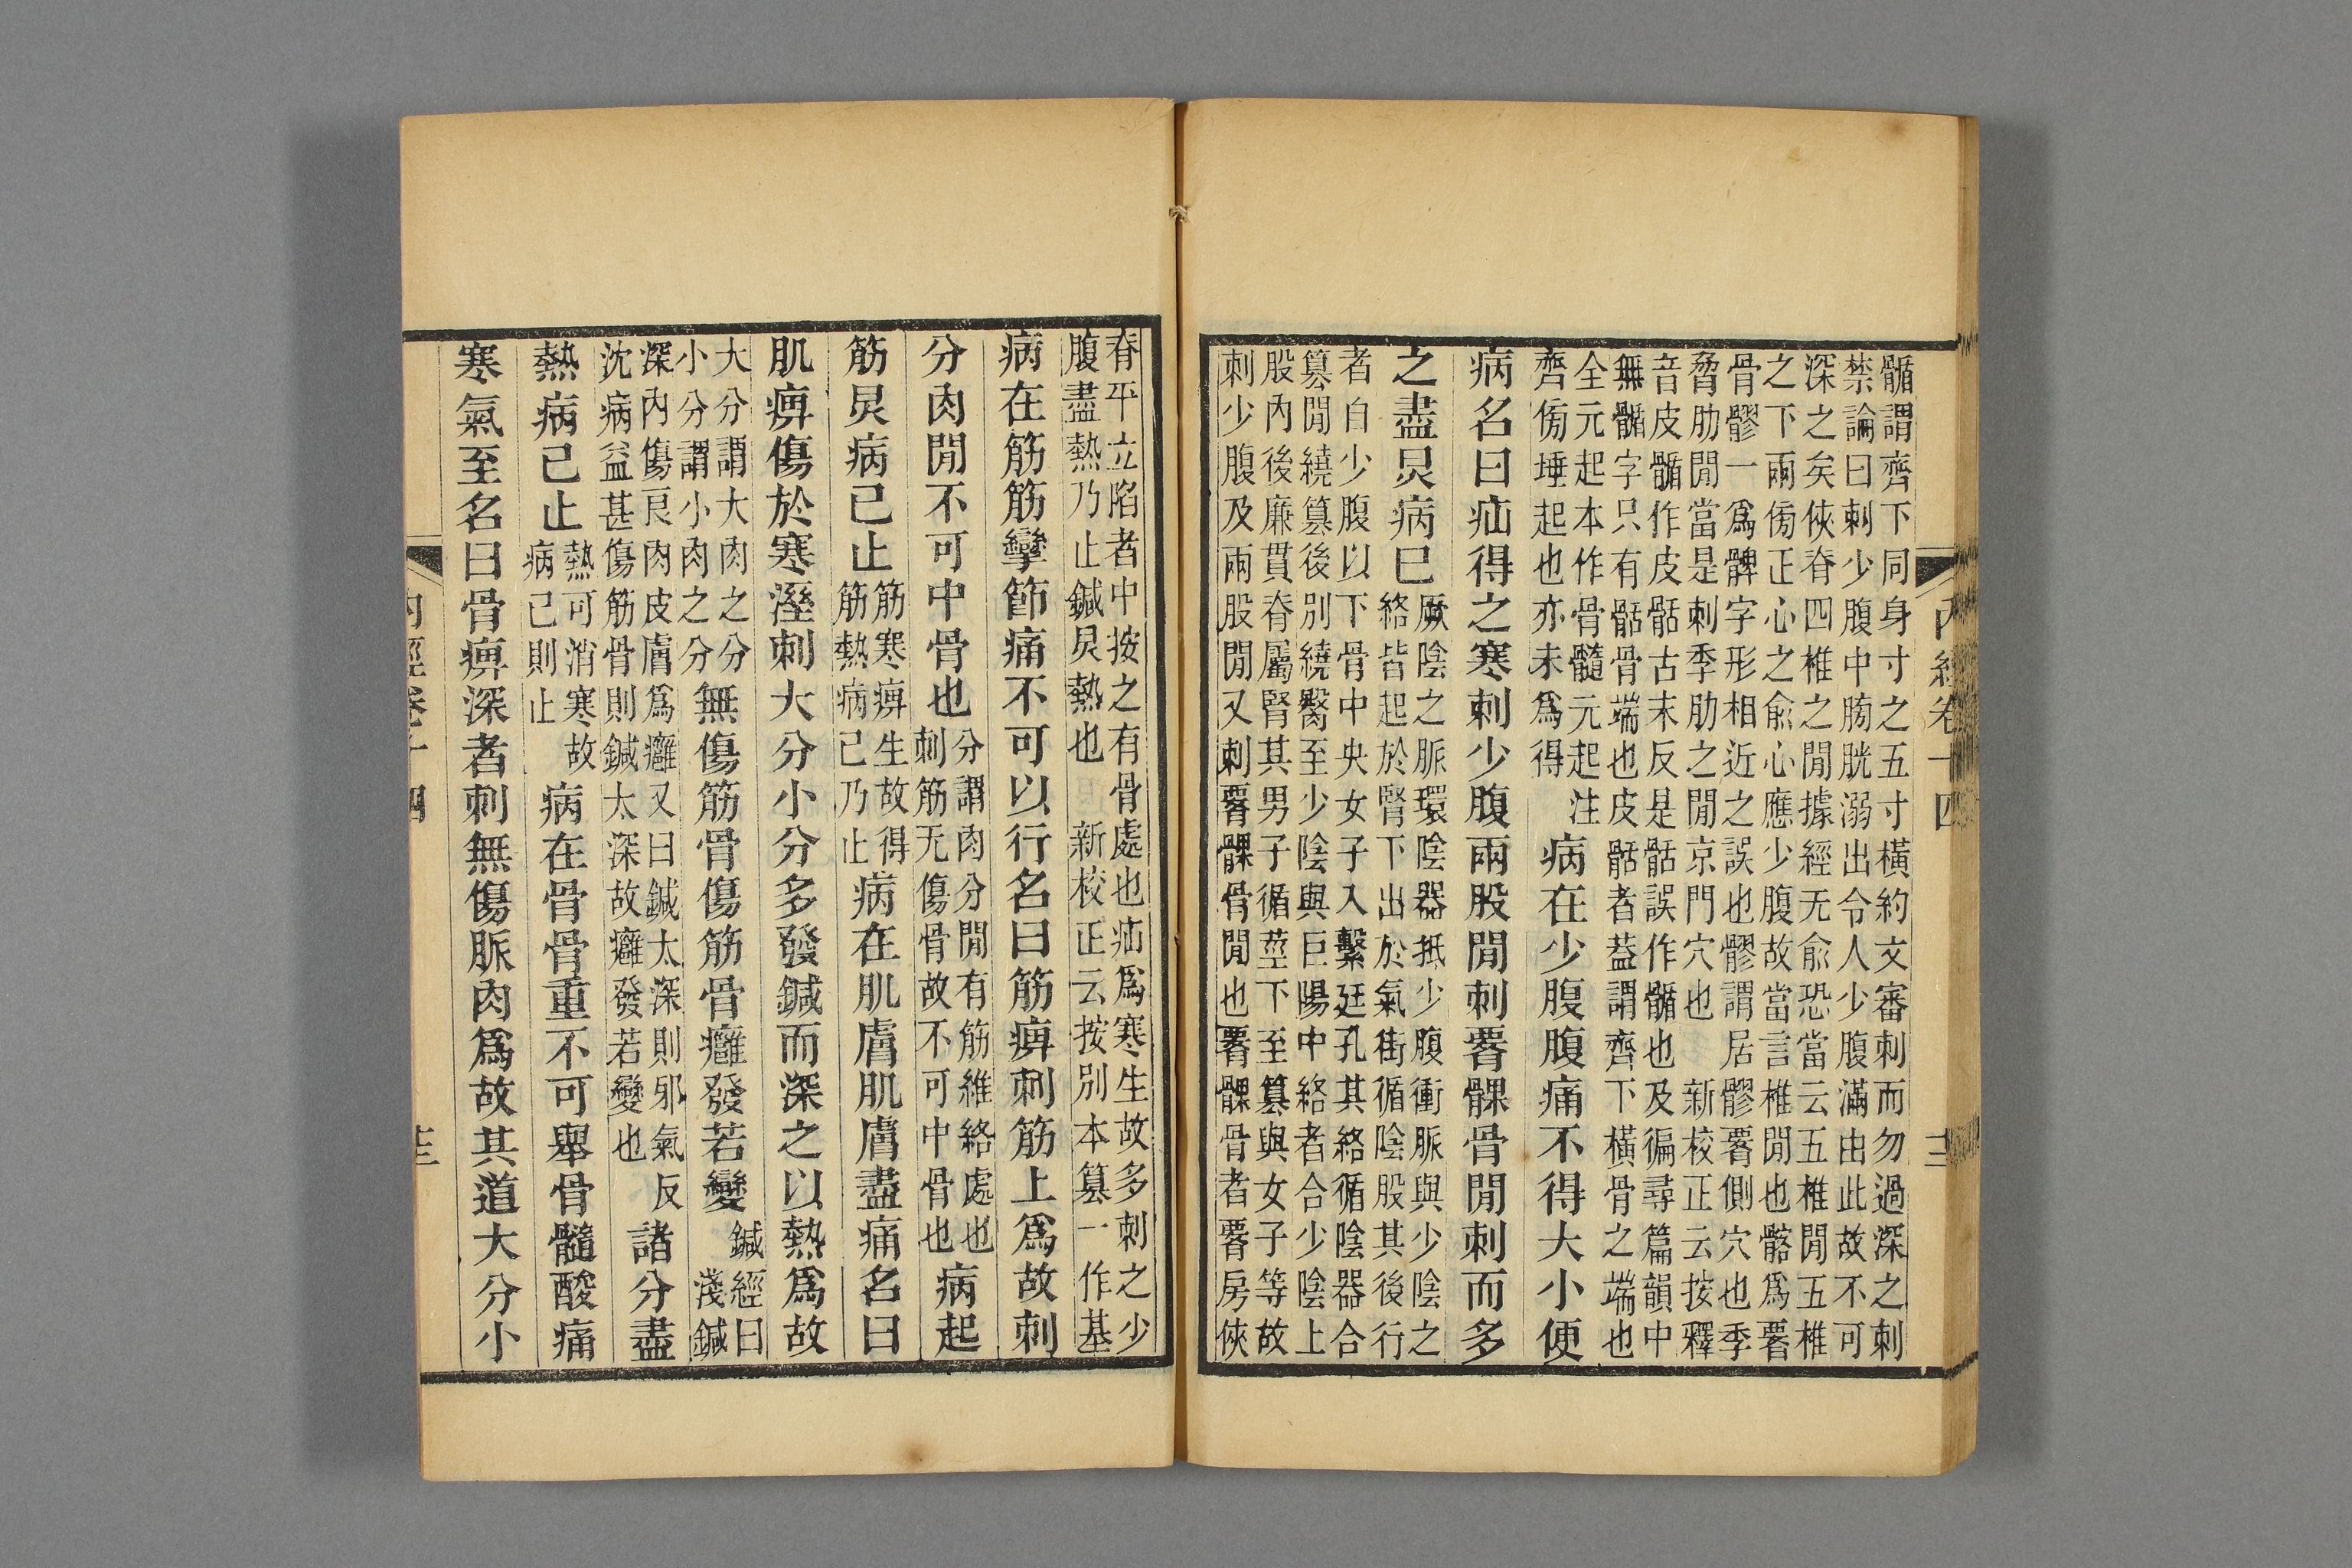 䯏謂齊下同身寸之五寸橫約文審刺而勿過深之刺
禁論曰刺少腹中膀胱溺出令人少腹滿由此故不可
深之矣俠脊四椎之閒據經无俞恐當云五椎閒五椎
之下兩傍正心之俞心應少腹故當言椎閒也髂爲腰
骨髎一爲髀字形相近之誤也髎謂居髎腰側穴也季
脅肋閒當是刺季肋之閒京門穴也　新校正云按釋
音皮䯏作皮骺骺古末反是骺誤作䯏也及徧尋篇韻中
無䯏字只有骺骺骨端也皮骺者蓋謂齊下橫骨之端也
全元起本作骨髓元起注
齊傍埵起也亦未爲得
病在少腹腹痛不得大小便
病名曰疝得之寒刺少腹兩股閒刺腰髁骨閒刺而多
之盡炅病已
厥陰之脈環陰器抵少腹衝脈與少陰之
絡皆起於腎下出於氣街循陰股其後行
者自少腹以下骨中央女子入繫廷孔其絡循陰器合
簒閒繞簒後別繞臀至少陰與巨陽中絡者合少陰上
股內後廉貫脊屬腎其男子循莖下至簒與女子等故
刺少腹及兩股閒又刺腰髁骨閒也腰髁骨者腰房俠
內經卷十四
十二
脊平立陷者中按之有骨處也疝爲寒生故多刺之少
腹盡熱乃止鍼炅熱也　新校正云按別本簒一作基
病在筋筋攣節痛不可以行名曰筋痹刺筋上爲故刺
分肉閒不可中骨也
分謂肉分閒有筋維絡處也
刺筋无傷骨故不可中骨也
病起
筋炅病已止
筋寒痹生故得
筋熱病已乃止
病在肌膚肌膚盡痛名曰
肌痹傷於寒溼刺大分小分多發鍼而深之以熱爲故
大分謂大肉之分
小分謂小肉之分
無傷筋骨傷筋骨癰發若變
鍼經曰
淺鍼
深內傷良肉皮膚爲癰又曰鍼太深則邪氣反
沈病益甚傷筋骨則鍼太深故癰發若變也
諸分盡
熱病已止
熱可消寒故
病已則止
病在骨骨重不可舉骨髓酸痛
寒氣至名曰骨痹深者刺無傷脈肉爲故其道大分小
內經卷十四
十三